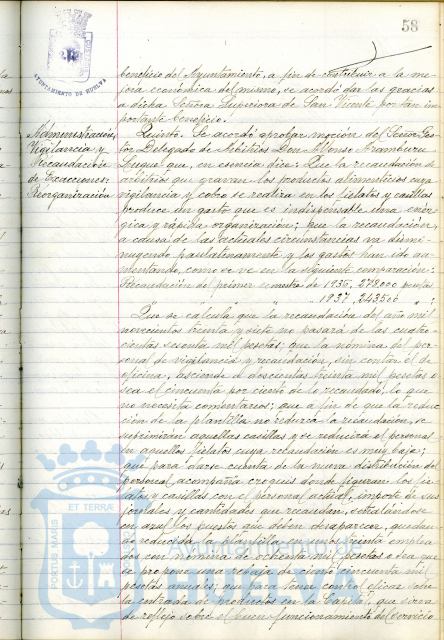 58
AYUNTAMIENTO DE HUELVA
beneficio del Ayuntamiento, a fin de contribuir a la me-
joria económica del mismo, se acordó dar las gracias
a dicha Señora Superiora de San Vicente por tan im-
portante beneficio.
Administración,
Vigilancia y
Recaudación
de Exacciones:
Reorganización
Quinto. Se acordó aprobar moción del Señor Ges-
tor Delegado de Arbitrios Don Alfonso Aramburu
Luque que, en esencia dice: Que la recaudación de
arbitrios que gravan los productos alimenticios cuya
vigilancia y cobro se realiza en los fielatos y casillas
produce un gasto que es indispensable una enér-
gica y rápida organización; que la recaudación,
a causa de las actuales circunstancias va dismi-
nuyendo paulatinamente y los gastos han ido au-
mentando, como se ve en la siguiente comparación:
Recaudación del primer semestre de 1936, 272000 pesetas
" " " " 1937, 243500 " ;
Que se calcula que la recaudación del año mil
novecientos treinta y siete no pasará de las cuatro
cientas sesenta mil pesetas; que la nómina del per-
sonal de vigilancia y recaudación, sin contar el de
oficina, asciende a doscientas treinta mil pesetas o
sea el cincuenta por ciento de lo recaudado, lo que
no necesita comentarios; que a fin de que la reduc-
ción de la plantilla no reduzca la recaudación, se
suprimirán aquellas casillas y se reducirá el personal
en aquellos fielatos cuya recaudación es muy baja;
que para darse cuenta de la nueva distribución del
personal, acompaña croquis donde figuran los fie-
latos y casillas con el personal actual, importe de sus
jornales y cantidades que recaudan, señalándose
en azul los puestos que deben desaparecer, quedan-
do reducida la plantilla a unos treinta emplea
dos con nómina de ochenta mil pesetas o sea que
se propone una rebaja de ciento cincuenta mil
pesetas anuales; que para tener control eficaz sobre
la entrada de productos en la Capital, que sirva
de reflejo sobre el buen funcionamiento del servicio
PORTUS MARIS ET TERRÆ
Ayuntamiento de
HUELVA